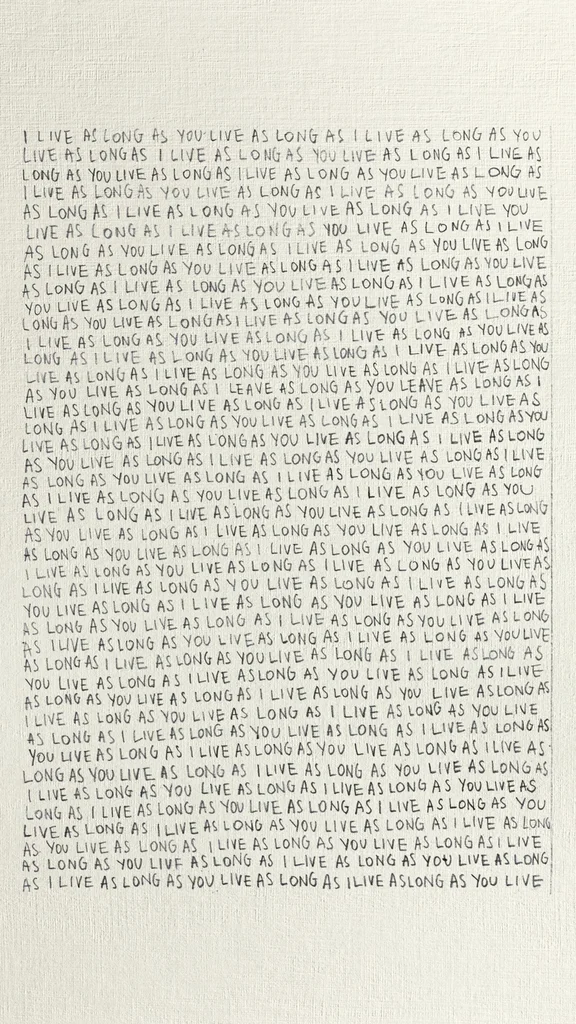 I LIVE AS LONG AS YOU LIVE AS LONG AS I LIVE AS LONG AS YOU
LIVE AS LONG AS I LIVE AS LONG AS YOU LIVE AS LONG AS I LIVE AS
LONG AS YOU LIVE AS LONG AS I LIVE AS LONG AS YOU LIVE AS LONG AS
I LIVE AS LONG AS YOU LIVE AS LONG AS I LIVE AS LONG AS YOU LIVE
AS LONG AS I LIVE AS LONG AS YOU LIVE AS LONG AS I LIVE YOU
LIVE AS LONG AS I LIVE AS LONG AS YOU LIVE AS LONG AS I LIVE
AS LONG AS YOU LIVE AS LONG AS I LIVE AS LONG AS YOU LIVE AS LONG
AS I LIVE AS LONG AS YOU LIVE AS LONG AS I LIVE AS LONG AS YOU LIVE
AS LONG AS I LIVE AS LONG AS YOU LIVE AS LONG AS I LIVE AS LONG AS
YOU LIVE AS LONG AS I LIVE AS LONG AS YOU LIVE AS LONG AS I LIVE AS
LONG AS YOU LIVE AS LONG AS I LIVE AS LONG AS YOU LIVE AS LONG AS
I LIVE AS LONG AS YOU LIVE AS LONG AS I LIVE AS LONG AS YOU LIVE AS
LONG AS I LIVE AS LONG AS YOU LIVE AS LONG AS I LIVE AS LONG AS YOU
LIVE AS LONG AS I LIVE AS LONG AS YOU LIVE AS LONG AS I LIVE AS LONG
AS YOU LIVE AS LONG AS I LEAVE AS LONG AS YOU LEAVE AS LONG AS I
LIVE AS LONG AS YOU LIVE AS LONG AS I LIVE AS LONG AS YOU LIVE AS
LONG AS I LIVE AS LONG AS YOU LIVE AS LONG AS I LIVE AS LONG AS YOU
LIVE AS LONG AS I LIVE AS LONG AS YOU LIVE AS LONG AS I LIVE AS LONG
AS YOU LIVE AS LONG AS I LIVE AS LONG AS YOU LIVE AS LONG AS I LIVE
AS LONG AS YOU LIVE AS LONG AS I LIVE AS LONG AS YOU LIVE AS LONG
AS I LIVE AS LONG AS YOU LIVE AS LONG AS I LIVE AS LONG AS YOU
LIVE AS LONG AS I LIVE AS LONG AS YOU LIVE AS LONG AS I LIVE AS LONG
AS YOU LIVE AS LONG AS I LIVE AS LONG AS YOU LIVE AS LONG AS I LIVE
AS LONG AS YOU LIVE AS LONG AS I LIVE AS LONG AS YOU LIVE AS LONG AS
I LIVE AS LONG AS YOU LIVE AS LONG AS I LIVE AS LONG AS YOU LIVE AS
LONG AS I LIVE AS LONG AS YOU LIVE AS LONG AS I LIVE AS LONG AS
YOU LIVE AS LONG AS I LIVE AS LONG AS YOU LIVE AS LONG AS I LIVE
AS LONG AS YOU LIVE AS LONG AS I LIVE AS LONG AS YOU LIVE AS LONG
AS I LIVE AS LONG AS YOU LIVE AS LONG AS I LIVE AS LONG AS YOU LIVE
AS LONG AS I LIVE AS LONG AS YOU LIVE AS LONG AS I LIVE AS LONG AS
YOU LIVE AS LONG AS I LIVE AS LONG AS YOU LIVE AS LONG AS I LIVE
AS LONG AS YOU LIVE AS LONG AS I LIVE AS LONG AS YOU LIVE AS LONG AS
I LIVE AS LONG AS YOU LIVE AS LONG AS I LIVE AS LONG AS YOU LIVE
AS LONG AS I LIVE AS LONG AS YOU LIVE AS LONG AS I LIVE AS LONG AS
YOU LIVE AS LONG AS I LIVE AS LONG AS YOU LIVE AS LONG AS I LIVE AS
LONG AS YOU LIVE AS LONG AS I LIVE AS LONG AS YOU LIVE AS LONG AS
I LIVE AS LONG AS YOU LIVE AS LONG AS I LIVE AS LONG AS YOU LIVE AS
LONG AS I LIVE AS LONG AS YOU LIVE AS LONG AS I LIVE AS LONG AS YOU
LIVE AS LONG AS I LIVE AS LONG AS YOU LIVE AS LONG AS I LIVE AS LONG
AS YOU LIVE AS LONG AS I LIVE AS LONG AS YOU LIVE AS LONG AS I LIVE
AS LONG AS YOU LIVE AS LONG AS I LIVE AS LONG AS YOU LIVE AS LONG
AS I LIVE AS LONG AS YOU LIVE AS LONG AS I LIVE AS LONG AS YOU LIVE